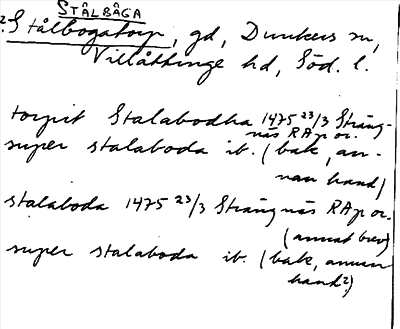 STÅLBÅGA
2. Stålbogatorp, gd, Dunkers sn,
Villåttinge hd, Söd. l.
torpit Stalabodha 1475 23/3 Sträng-
näs RAp or.
super stalaboda ib. (bak, an-
nan hand)
stalaboda 1475 23/3 Strängnäs RAp or.
(annat brev)
super stalaboda ib. (bak, annan
hand?)